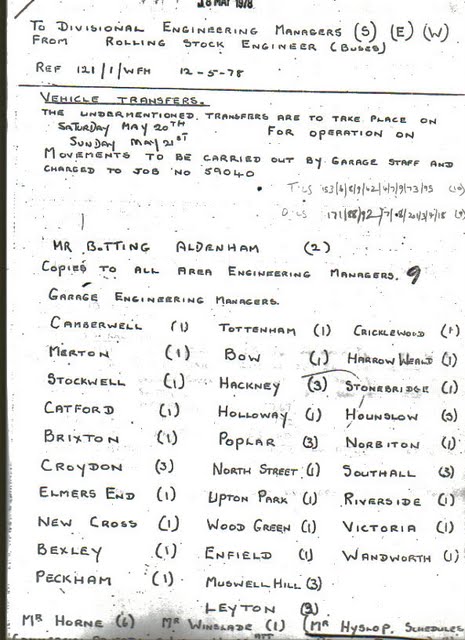 18 MAY 1978
TO DIVISIONAL ENGINEERING MANAGERS (S) (E) (W)
FROM ROLLING STOCK ENGINEER (BUSES)
REF 121/1/WFH 12-5-78
VEHICLE TRANSFERS.
THE UNDERMENTIONED TRANSFERS ARE TO TAKE PLACE ON
SATURDAY MAY 20TH FOR OPERATION ON
SUNDAY MAY 21ST
MOVEMENTS TO BE CARRIED OUT BY GARAGE STAFF AND
CHARGED TO JOB NO 59040
MR BOTTING ALDENHAM (2)
COPIED TO ALL AREA ENGINEERING MANAGERS. 9
GARAGE ENGINEERING MANAGERS.
CAMBERWELL (1) TOTTENHAM (1) CRICKLEWOOD (1)
MERTON (1) BOW (1) HARROW WEALD (1)
STOCKWELL (1) HACKNEY (3) STONEBRIDGE (1)
CATFORD (1) HOLLOWAY (1) HOUNSLOW (3)
BRIXTON (1) POPLAR (3) NORBITON (1)
CROYDON (3) NORTH STREET (1) SOUTHALL (3)
ELMERS END (1) UPTON PARK (1) RIVERSIDE (1)
NEW CROSS (1) WOOD GREEN (1) VICTORIA (1)
BEXLEY (1) ENFIELD (1) WANDWORTH (1)
PECKHAM (1) MUSWELL HILL (3)
LEYTON (3)
MR HORNE (6) MR WINSLADE (1) (MR HYSLOP. SCHEDULES
ATT